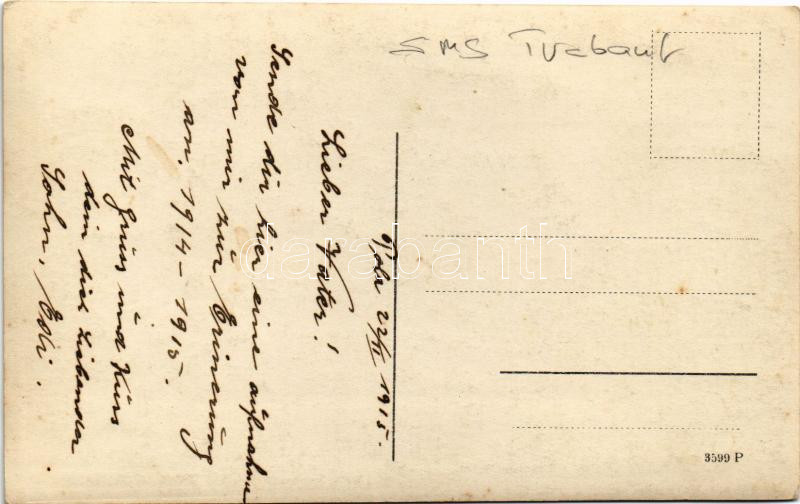 SMS Trabant
Pola 22/II 1915.
Lieber Vater!
Sende dir hier eine aufnahme
von mir zur Erinerung
an. 1914-1915.
Mit Gruss und Kuss
dein dich Liebender
Sohn, Edi.
3599 P
darabanth